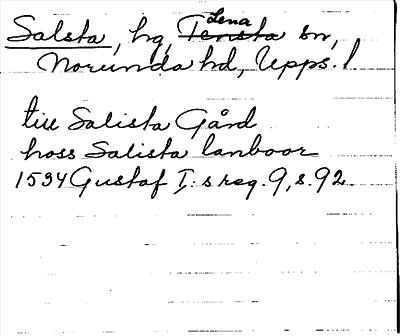 Salsta, hg, Tensta Lena sn,
Norunda hd, Upps. l
till Salista Gård
hoss Salista lanboor
1534 Gustaf I:s reg. 9, s. 92.